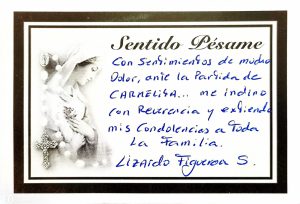 Sentido Pésame
Con Sentimientos de mucho
Dolor, ante la Partida de
CARMELISA... me indino
con Reverencia y extiendo
mis Condolencias a Toda
La Familia.
Lizardo Figueroa S.